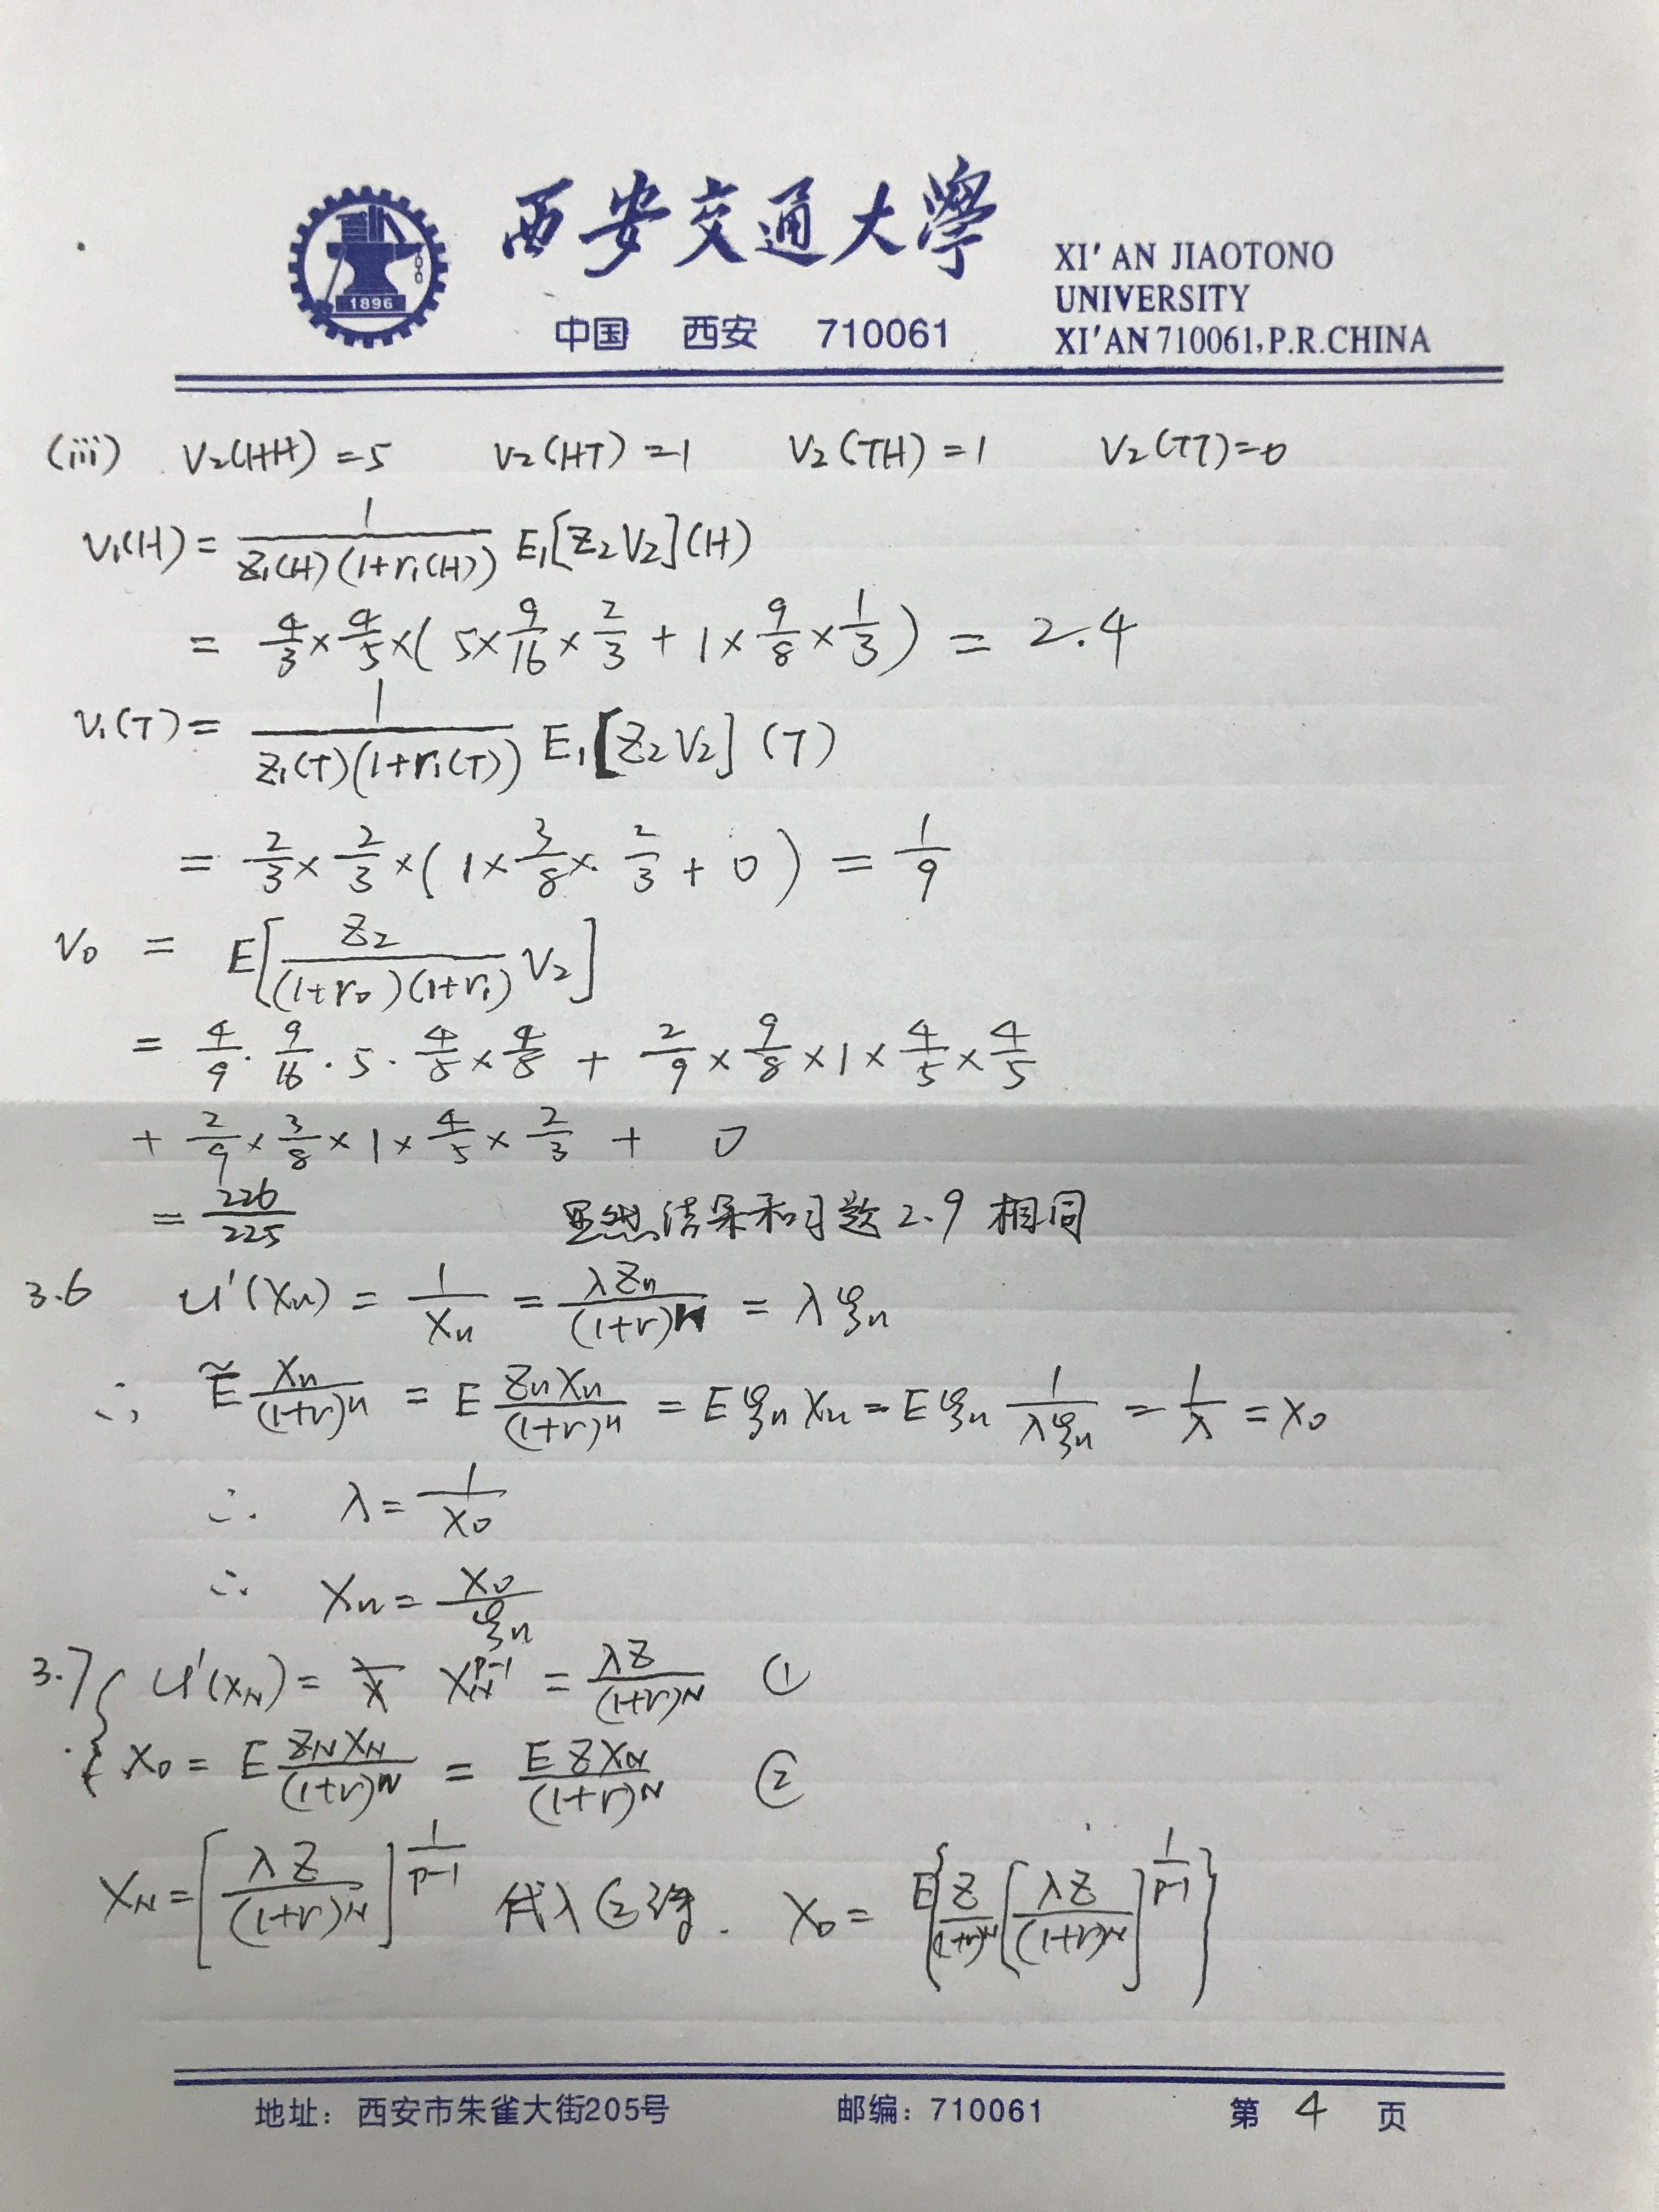 西安交通大學
XI'AN JIAOTONO
UNIVERSITY
XI'AN 710061, P.R.CHINA
中国 西安 710061
1896
(iii) V₂(HH) = 5 V₂(HT) = 1 V₂(TH) = 1 V₂(TT) = 0
V₁(H) = 1/(Z₁(H)(1+r₁(H))) E₁[Z₂V₂](H)
= 4/3 × 4/5 × (5 × 9/16 × 2/3 + 1 × 9/8 × 1/3) = 2.4
V₁(T) = 1/(Z₁(T)(1+r₁(T))) E₁[Z₂V₂](T)
= 2/3 × 2/3 × (1 × 3/8 × 2/3 + 0) = 1/9
V₀ = E[Z₂/((1+r₀)(1+r₁)) V₂]
= 4/9 · 9/16 · 5 · 4/5 × 4/5 + 2/9 × 9/8 × 1 × 4/5 × 4/5
+ 2/9 × 3/8 × 1 × 4/5 × 2/3 + 0
= 226/225 显然结果和习题2.9相同
3.6 u'(Xₙ) = 1/Xₙ = λZₙ/(1+r)ⁿ = λξₙ
∴ Ẽ Xₙ/(1+r)ⁿ = E ZₙXₙ/(1+r)ⁿ = EξₙXₙ = Eξₙ 1/(λξₙ) = 1/λ = X₀
∴ λ = 1/X₀
∴ Xₙ = X₀/ξₙ
3.7 { u'(X_N) = X_N^(p-1) = λZ/(1+r)^N ①
X₀ = E Z_N X_N/(1+r)^N = E Z X_N/(1+r)^N ②
X_N = [λZ/(1+r)^N]^(1/(p-1)) 代入②得. X₀ = E{Z/(1+r)^N [λZ/(1+r)^N]^(1/(p-1))}
地址：西安市朱雀大街205号 邮编：710061 第 4 页